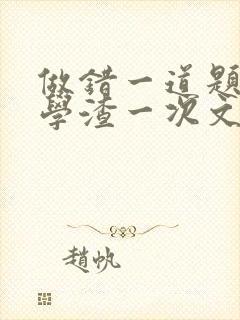 做錯一道題
學渣一次文
趙帆